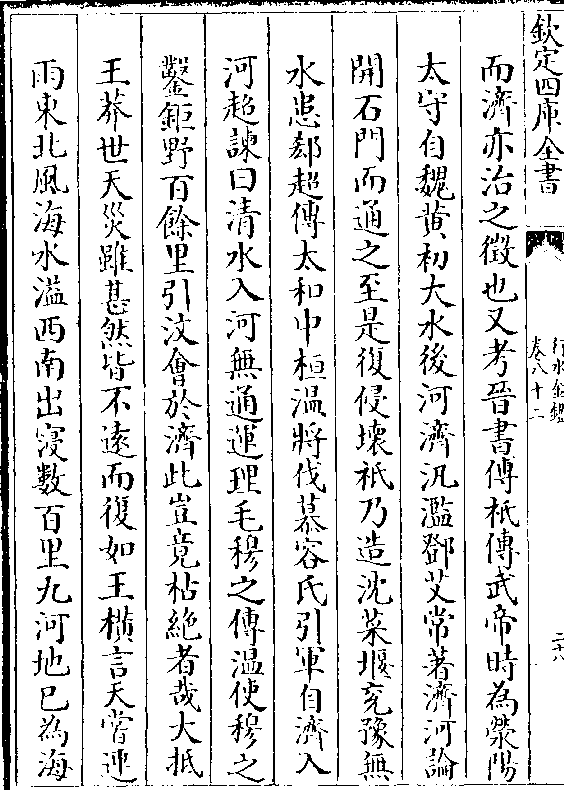 欽定四庫全書
行水金鑑
卷八十二
二十八
而濟亦治之徵也又考晉書傅祗傳武帝時為滎陽
太守自魏黃初大水後河濟汎濫鄧艾常著濟河論
開石門而通之至是復侵壞祗乃造沈萊堰兖豫無
水患郄超傳太和中桓温將伐慕容氏引軍自濟入
河超諫曰清水入河無通運理毛穆之傳温使穆之
鑿鉅野百餘里引汶會於濟此豈竟枯絶者哉大抵
王莽世天災雖甚然皆不遠而復如王横言天嘗連
雨東北風海水溢西南出寖數百里九河地已為海